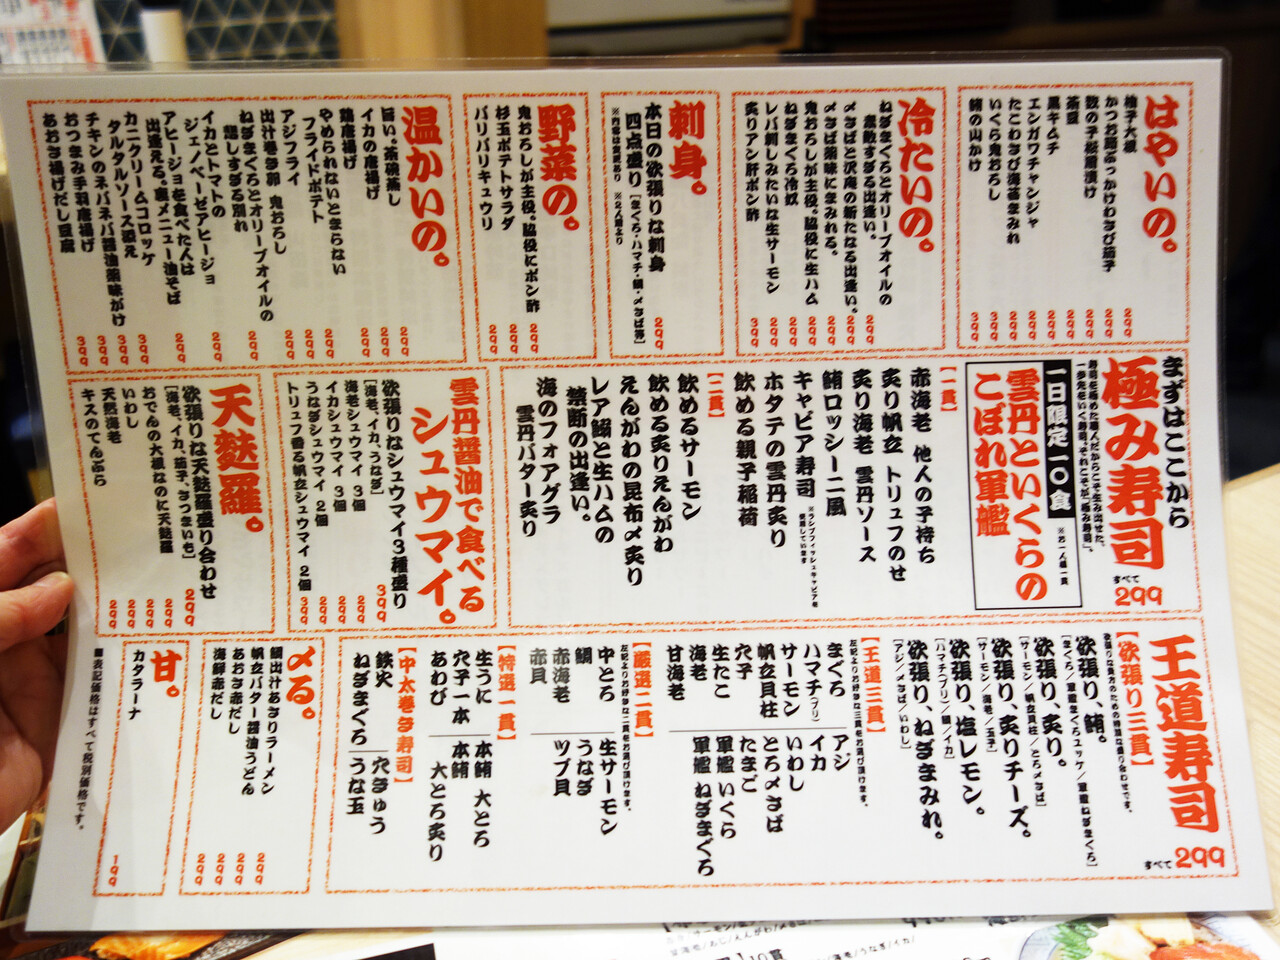 はやいの。
柚子大根 299
かつお節ぶっかけわさび茄子 299
数の子松前漬け 299
茶豆 299
黒キムチ 299
エンガワチャンジャ 299
たこわさび海苔まみれ 299
いくら鬼おろし 399
鮪の山かけ 399
冷たいの。
ねぎまぐろとオリーブオイルの
素敵すぎる出逢い。 299
〆さばと沢庵の新たなる出逢い。 299
〆さば薬味にまみれる。 299
鬼おろしが主役。脇役に生ハム 299
ねぎまぐろ冷奴 299
レバ刺しみたいな生サーモン 299
炙りアン肝ポン酢 399
刺身。
本日の欲張りな刺身
四点盛り [まぐろ・ハマチ・鯛・〆さば等] 299
※内容は変更あり ※2人前より
野菜の。
鬼おろしが主役。脇役にポン酢 299
杉玉ポテトサラダ 299
バリバリキュウリ 299
温かいの。
旨い茶碗蒸し 299
イカの唐揚げ 299
鶏唐揚げ 299
やめられないとまらない
フライドポテト 299
アジフライ 299
出汁巻き卵 鬼おろし 299
ねぎまぐろとオリーブオイルの
悲しすぎる別れ 299
イカとトマトの
ジェノベーゼアヒージョ 299
アヒージョを食べた人は
出逢える。裏メニュー油そば 299
カニクリームコロッケ
タルタルソース添え 399
チキンのネバネバ醤油薬味がけ 399
おつまみ手羽唐揚げ 399
あおさ揚げだし豆腐 399
まずはここから
極み寿司
すべて299
寿司を極めた職人だからこそ生み出せた、
一歩先をいく寿司。それこそが「極み寿司」。
一日限定一〇食 ※お一人様一貫
雲丹といくらの
こぼれ軍艦
【一貫】
赤海老 他人の子持ち
炙り帆立 トリュフのせ
炙り海老 雲丹ソース
鮪ロッシーニ風
キャビア寿司 ※ランプフィッシュキャビアを使用しています
ホタテの雲丹炙り
飲める親子稲荷
【二貫】
飲めるサーモン
飲める炙りえんがわ
えんがわの昆布〆炙り
レア鰯と生ハムの
禁断の出逢い。
海のフォアグラ
雲丹バター炙り
雲丹醤油で食べる
シュウマイ。
欲張りなシュウマイ3種盛り
[海老、イカ、うなぎ] 399
海老シュウマイ 3個 299
イカシュウマイ 3個 299
うなぎシュウマイ 2個 299
トリュフ香る帆立シュウマイ 2個 399
天麩羅。
欲張りな天麩羅盛り合わせ
[海老、イカ、茄子、さつまいも] 299
おでんの大根なのに天麩羅 299
いわし 299
天然海老 299
キスのてんぷら 299
王道寿司
すべて299
【欲張り三貫】
欲張りな貴方のための特別な盛り合わせです。
欲張り、鮪。
[まぐろ/軍艦まぐろユッケ/軍艦ねぎまぐろ]
欲張り、炙り。
[サーモン/帆立貝柱/とろ〆さば]
欲張り、炙りチーズ。
[サーモン/海老/玉子]
欲張り、塩レモン。
[ハマチ(ブリ)/鯛/イカ]
欲張り、ねぎまみれ。
[アジ/〆さば/いわし]
【王道三貫】
左記よりお好きな三貫をお選び頂けます。
まぐろ
ハマチ(ブリ)
サーモン
帆立貝柱
穴子
生たこ
海老
甘海老
アジ
イカ
いわし
とろ〆さば
たまご
軍艦 いくら
軍艦 ねぎまぐろ
【厳選二貫】
左記よりお好きな二貫をお選び頂けます。
中とろ
鯛
赤海老
赤貝
生サーモン
うなぎ
ツブ貝
【特選一貫】
生うに
穴子一本
あわび
本鮪 大とろ
本鮪
大とろ炙り
【中太巻き寿司】
鉄火
ねぎまぐろ
穴きゅう
うな玉
〆る。
鯛出汁あさりラーメン 299
帆立バター醤油うどん 299
あおさ赤だし 299
海鮮赤だし 299
甘。
カタラーナ 199
■表記価格はすべて税別価格です。